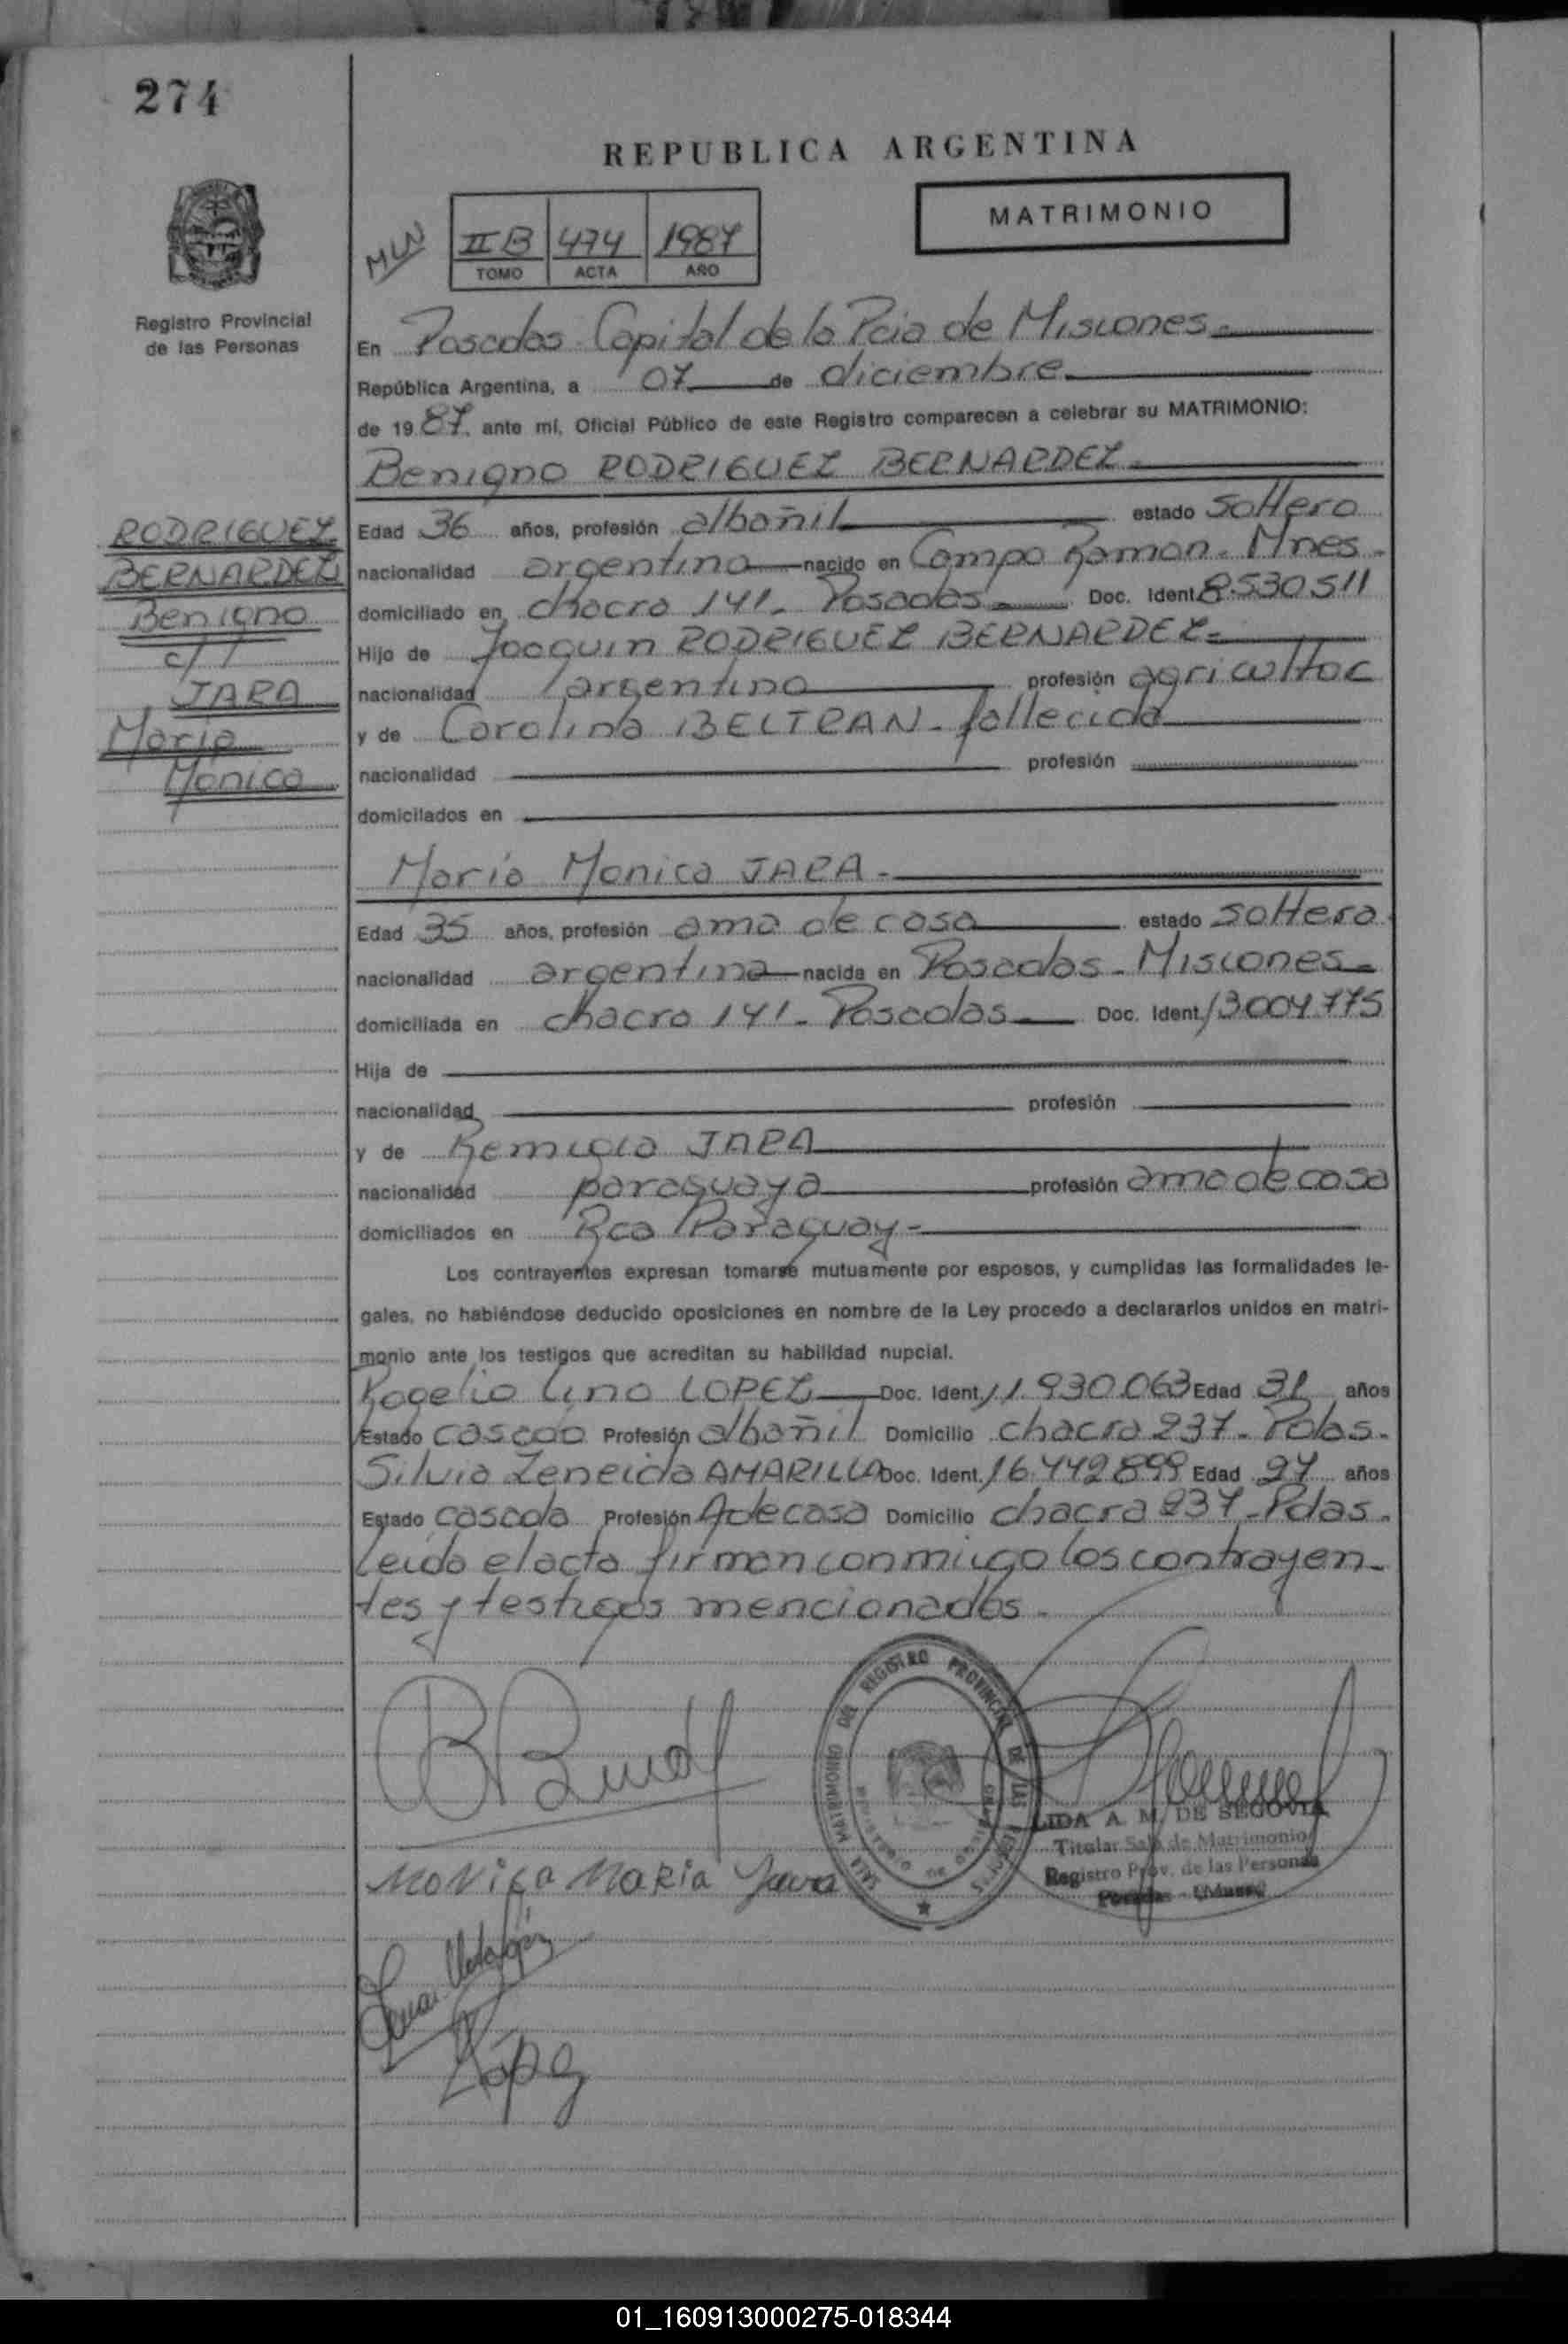 274
REPUBLICA ARGENTINA
MATRIMONIO
MLN
II B 474 1987
TOMO ACTA AÑO
Registro Provincial
de las Personas
En Posadas Capital de la Pcia de Misiones
República Argentina, a 07 de diciembre
de 1987 ante mí, Oficial Público de este Registro comparecen a celebrar su MATRIMONIO:
Benigno RODRIGUEZ BERNARDEZ
RODRIGUEZ
BERNARDEZ
Benigno
c/
JARA
Maria
Monica
Edad 36 años, profesión albañil estado soltero
nacionalidad argentina nacido en Campo Ramon - Mnes
domiciliado en chacra 141 - Posadas Doc. Ident. 8.530511
Hijo de Joaquin RODRIGUEZ BERNARDEZ
nacionalidad argentina profesión agricultor
y de Carolina BELTRAN - fallecida
nacionalidad profesión
domicilados en
Maria Monica JARA
Edad 35 años, profesión ama de casa estado soltera
nacionalidad argentina nacida en Posadas - Misiones
domiciliada en chacra 141 - Posadas Doc. Ident. 13004775
Hija de
nacionalidad profesión
y de Remigia JARA
nacionalidad paraguaya profesión ama de casa
domiciliados en Rca Paraguay
Los contrayentes expresan tomarse mutuamente por esposos, y cumplidas las formalidades le-
gales, no habiéndose deducido oposiciones en nombre de la Ley procedo a declararlos unidos en matri-
monio ante los testigos que acreditan su habilidad nupcial.
Rogelio Lino LOPEZ Doc. Ident. 11.930.063 Edad 31 años
Estado casado Profesión albañil Domicilio chacra 237 - Pdas.
Silvia Zeneida AMARILLA Doc. Ident. 16.442899 Edad 24 años
Estado casada Profesión A de casa Domicilio chacra 237 - Pdas.
Leida el acta firman conmigo los contrayen-
tes y testigos mencionados.
SALA MATRIMONIO DEL REGISTRO PROVINCIAL DE LAS PERSONAS
LIDA A. M. DE SEGOVIA
Titular Sala de Matrimonio
Registro Prov. de las Personas
MONiCa MaRia Jara
López
01_160913000275-018344